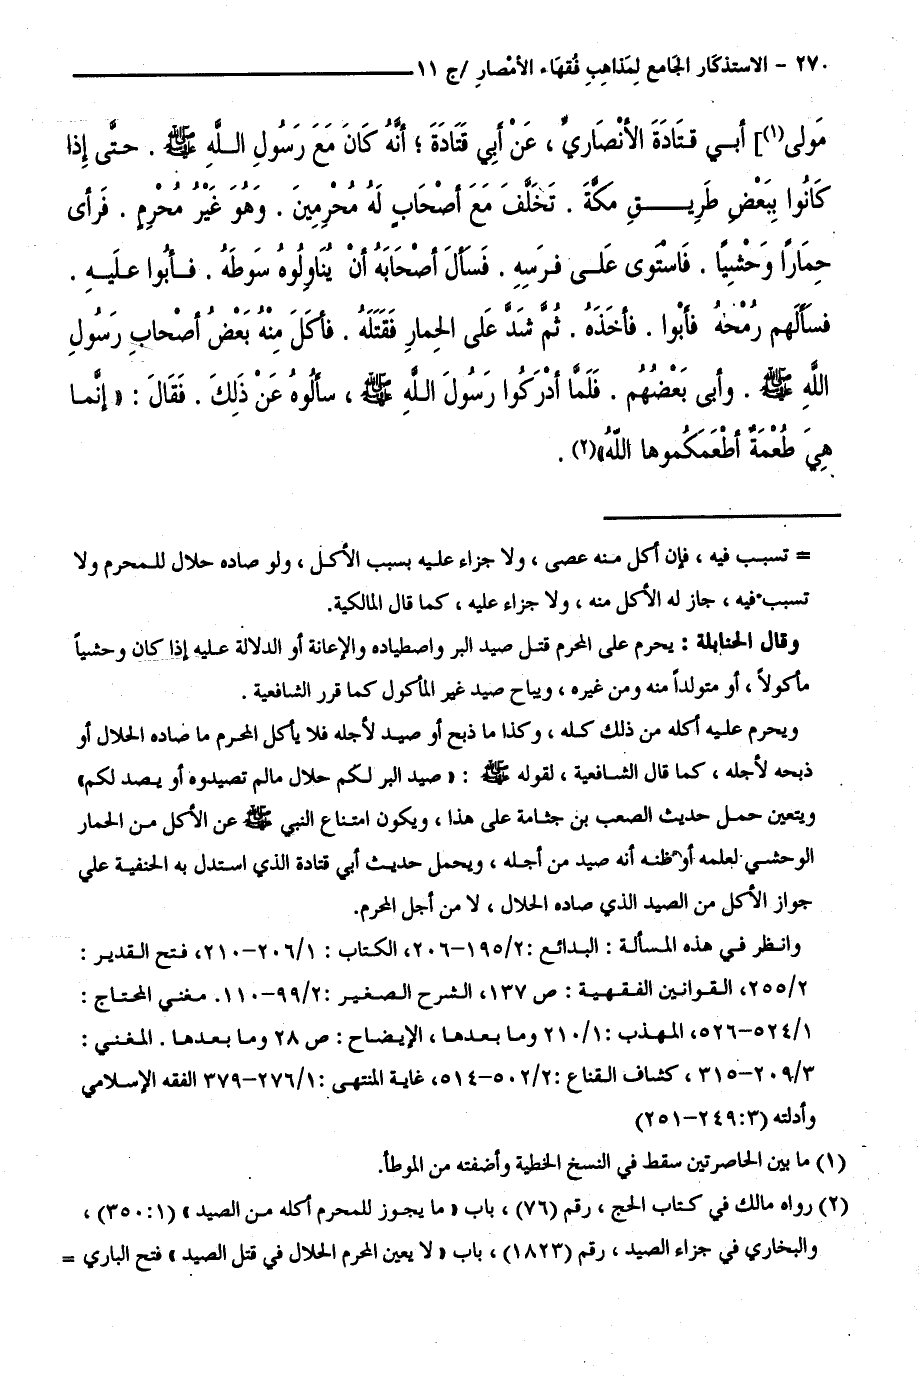 ٢٧٠ - الاستذكار الجامع لِمَذاهِبِ فُقهَاء الأمْصارِ /ج ١١
مَولى(١)] أبـي قـتَادَةَ الأنْصَاريِّ ، عَنْ أبِي قَتَادَةَ ؛ أنَّهُ كَانَ مَعَ رَسُولِ اللَّهِ ﷺ . حتَّى إذا
كَانُوا بِبَعْضِ طَرِيقِ مكَّةَ . تَخَلَّفَ مَعَ أصْحَابٍ لَهُ مُحْرِمِينَ . وَهُوَ غَيْرُ مُحْرِمٍ . فَرأى
حِمَارًا وَحْشيًا . فَاستَوى عَلَـى فـرَسِهِ . فَسَألَ أصْحَابَهُ أنْ يُنَاوِلُوهُ سَوطَهُ . فـأبُوا علَيـهِ .
فسَألَهم رُمْحَهُ فأبْوا . فأخَذَهُ . ثُمَّ شَدَّ عَلَى الحِمارِ فَقَتَلَهُ . فأكَلَ مِنْهُ بَعْضُ أصْحابِ رَسُولِ
اللَّهِ ﷺ . وأبى بَعْضُهُم . فَلَمَّا أدْرَكُوا رَسُولَ اللَّهِ ﷺ ، سألُوهُ عَنْ ذَلِكَ . فَقَالَ : « إنَّمـا
هِيَ طُعْمَةٌ أطْعَمَكُموها اللَّهُ»(٢) .
= تسبب فيه ، فإن أكل منه عصى ، ولا جزاء عليه بسبب الأكل ، ولو صاده حلال للمحرم ولا
تسبب فيه ، جاز له الأكل منه ، ولا جزاء عليه ، كما قال المالكية.
وقال الحنابلة : يحرم على المحرم قتل صيد البر واصطياده والإعانة أو الدلالة عليه إذا كان وحشياً
مأكولاً ، أو متولداً منه ومن غيره ، ويباح صيد غير المأكول كما قرر الشافعية .
ويحرم عليه أكله من ذلك كله ، وكذا ما ذبح أو صيد لأجله فلا يأكل المحرم ما صاده الحلال أو
ذبحه لأجله ، كما قال الشافعية ، لقوله ﷺ : « صيد البر لكم حلال مالم تصيدوه أو يصد لكم»
ويتعين حمل حديث الصعب بن جثامة على هذا ، ويكون امتناع النبي ﷺ عن الأكل من الحمار
الوحشي لعلمه أو ظنه أنه صيد من أجله ، ويحمل حديث أبي قتادة الذي استدل به الحنفية علي
جواز الأكل من الصيد الذي صاده الحلال ، لا من أجل المحرم.
وانظر في هذه المسألة : البدائع :١٩٥/٢-٢٠٦، الكتاب : ٢٠٦/١-٢١٠، فتح القدير :
٢٥٥/٢، القوانين الفقهية : ص ١٣٧، الشرح الصغير :٩٩/٢-١١٠. مغني المحتاج :
٥٢٤/١-٥٢٦، المهذب :٢١٠/١ وما بعدها ، الإيضاح : ص ٢٨ وما بعدها . المغني :
٢٠٩/٣-٣١٥ ، كشاف القناع :٥٠٢/٢-٥١٤، غاية المنتهى :٢٧٦/١-٣٧٩ الفقه الإسلامي
وأدلته (٢٤٩:٣-٢٥١)
(١) ما بين الحاصرتين سقط في النسخ الخطية وأضفته من الموطأ.
(٢) رواه مالك في كتاب الحج ، رقم (٧٦) ، باب « ما يجوز للمحرم أكله من الصيد » (٣٥٠:١) ،
والبخاري في جزاء الصيد ، رقم (١٨٢٣) ، باب « لا يعين المحرم الحلال في قتل الصيد » فتح الباري =